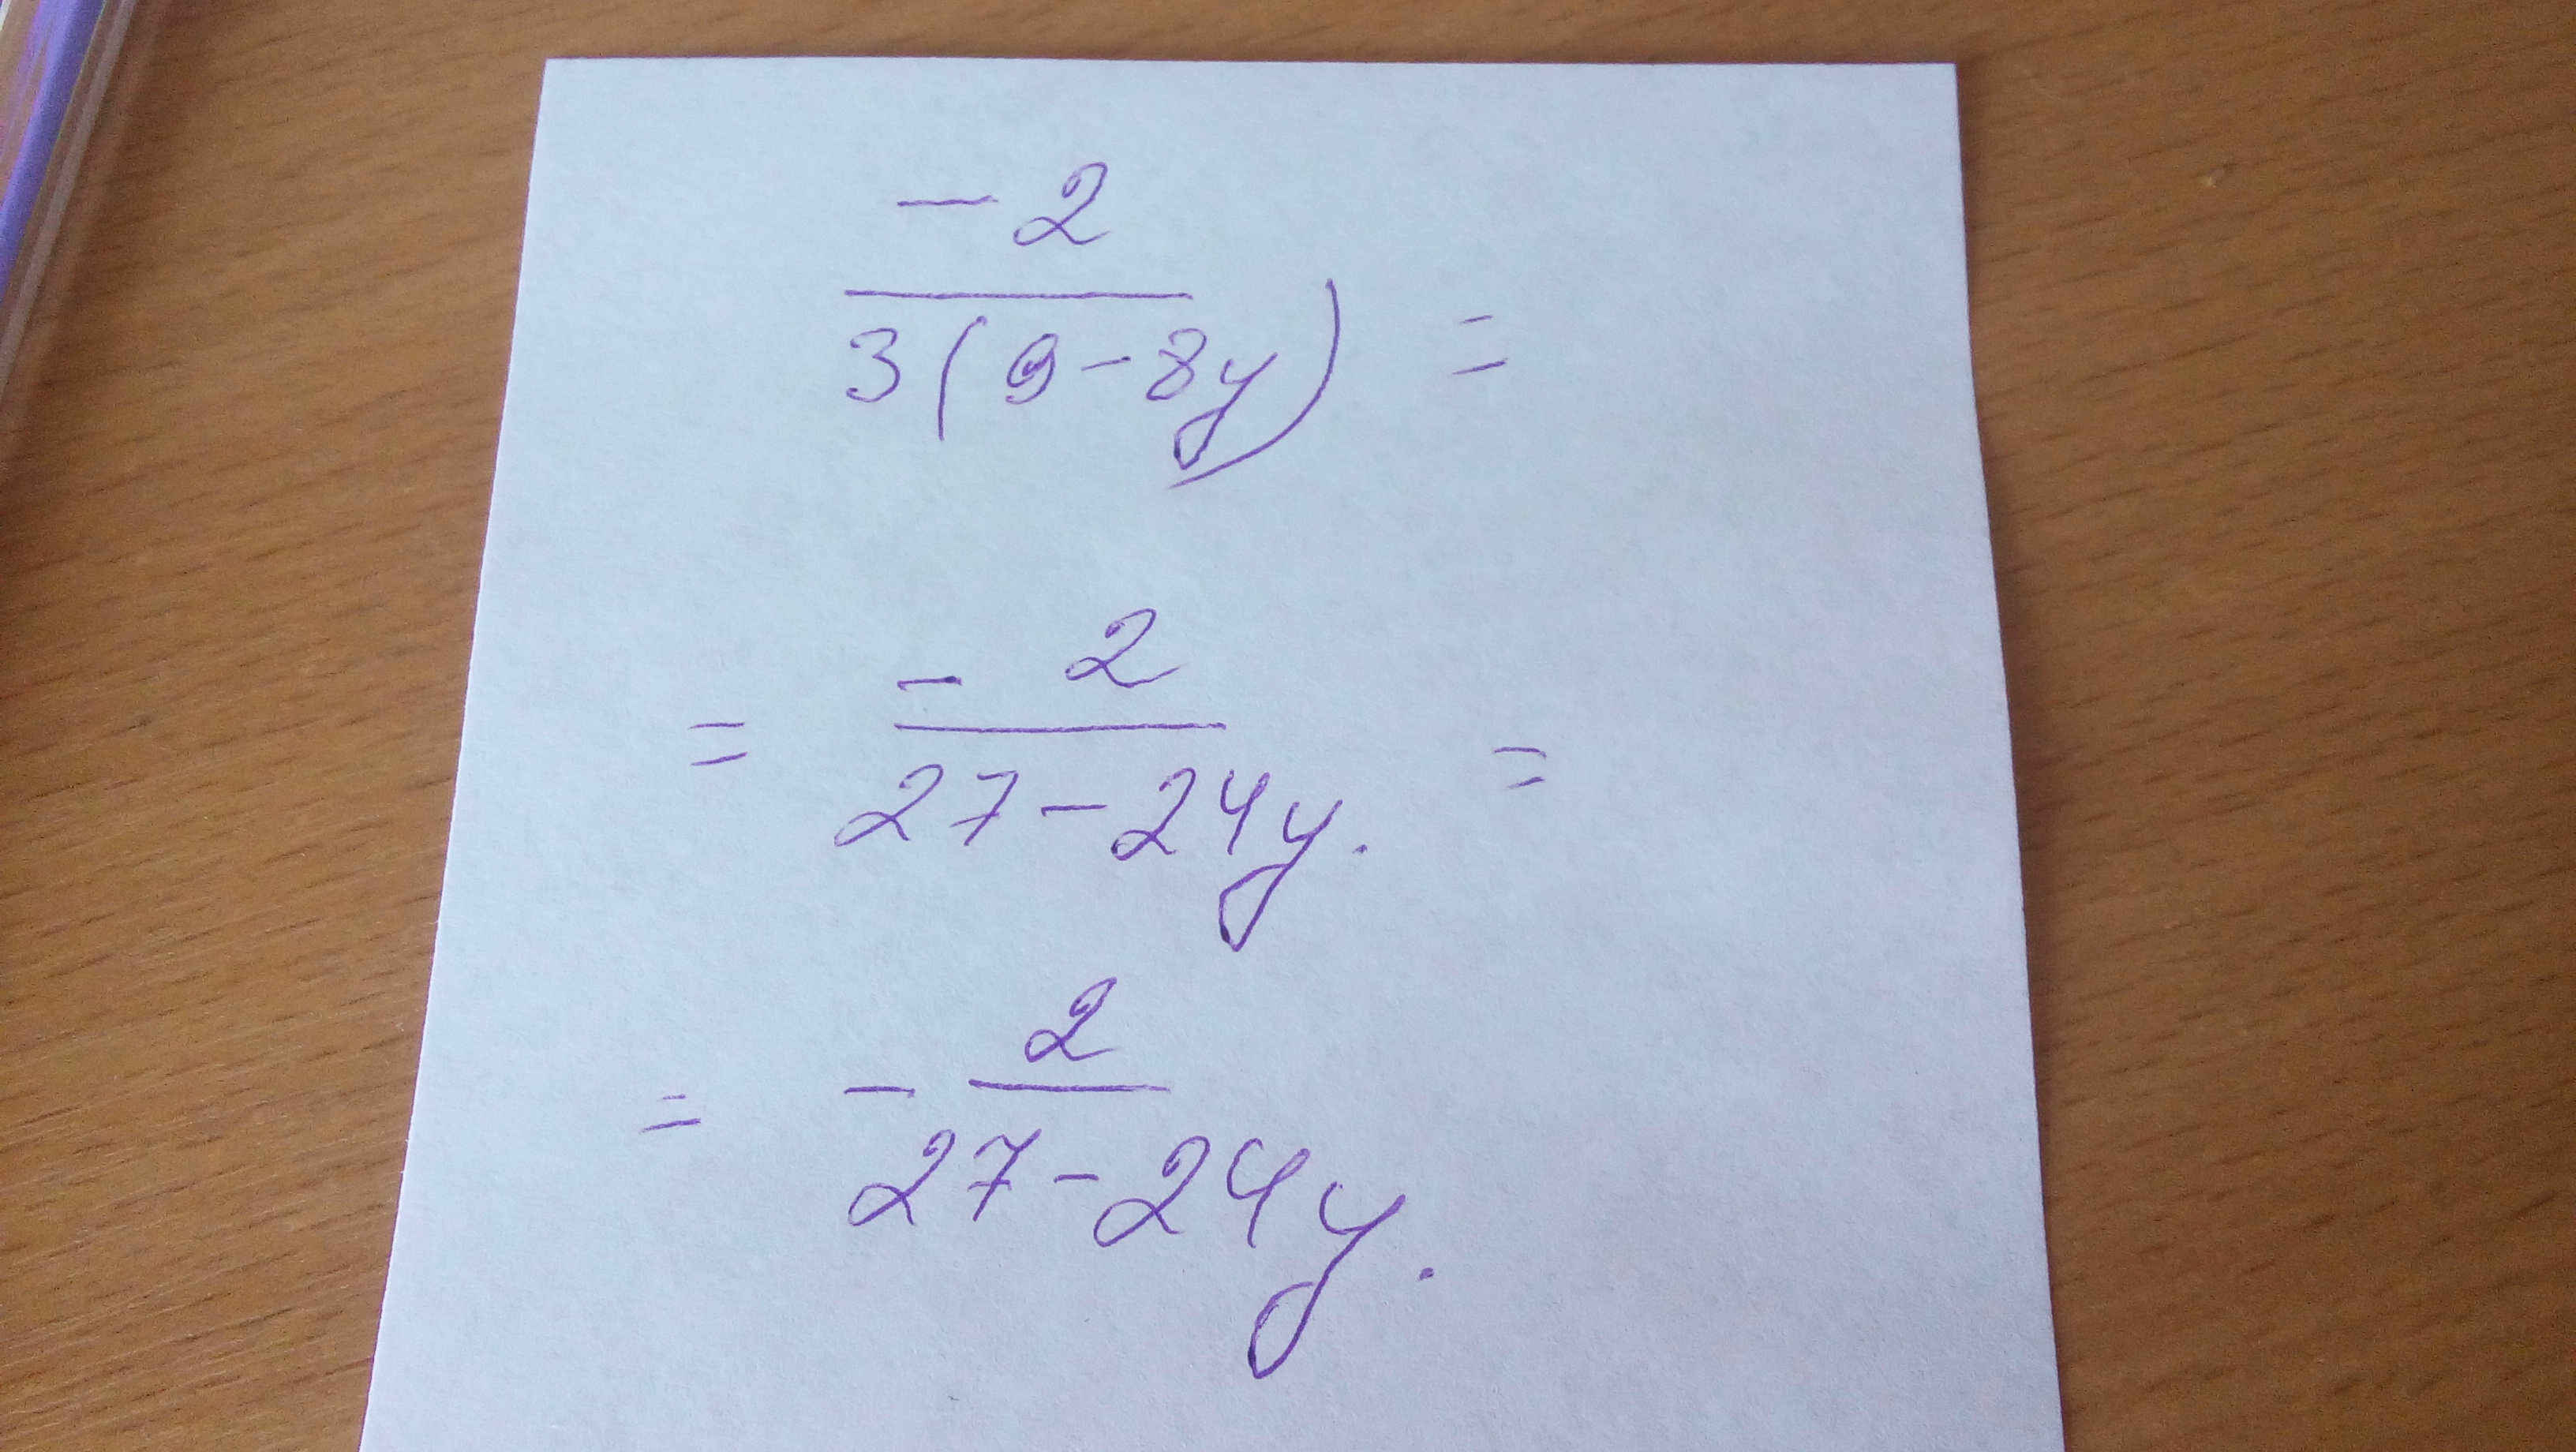 - 2
3(9-8y) =
- 2
= 27-24y. =
2
= - 27-24y.